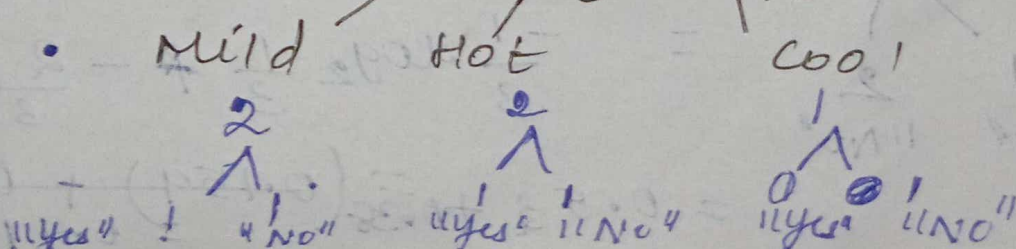 Mild Hot Cool
2 2 1
1 1 1 1 0 1
"Yes" "No" "Yes" "No" "Yes" "No"